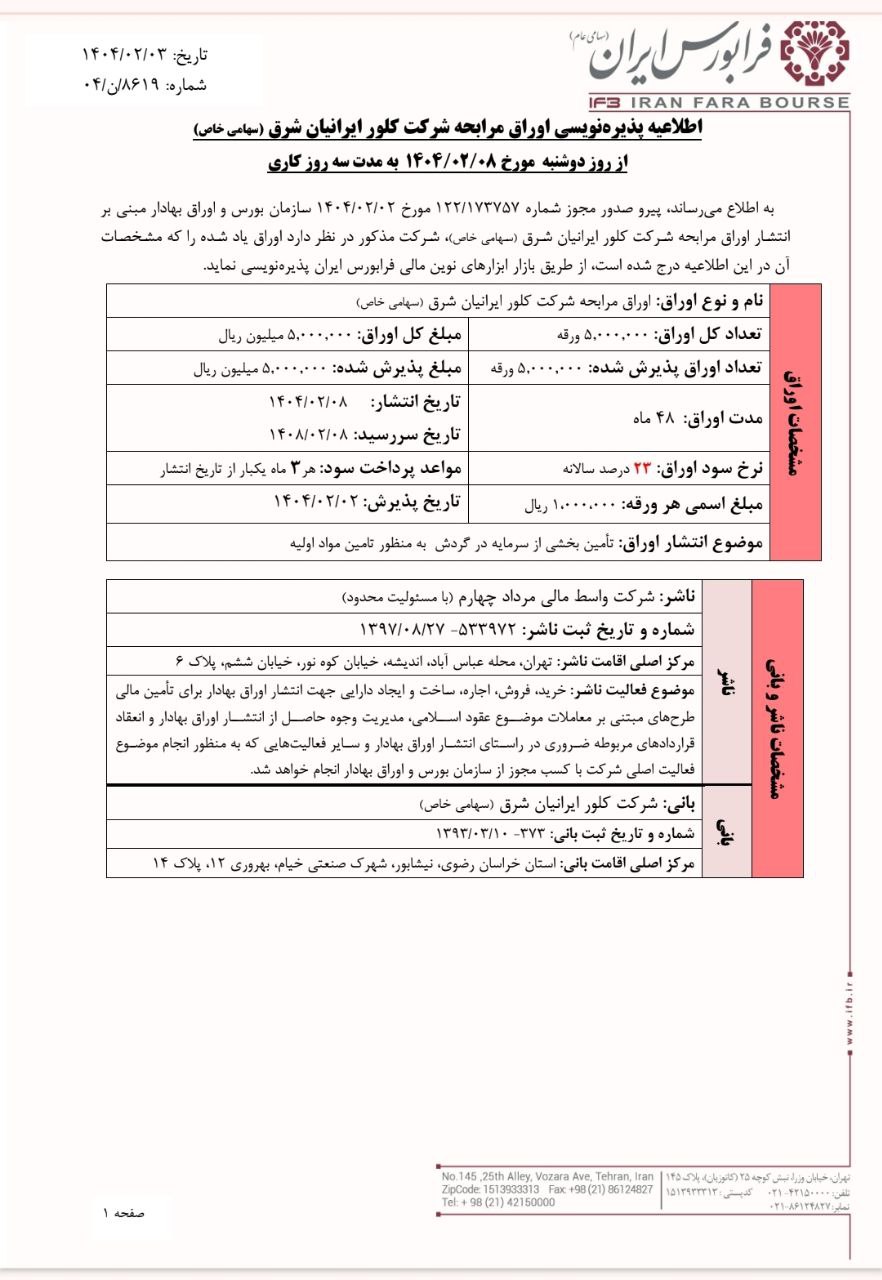 فرابورس ایران (سهامی عام)
IFB IRAN FARA BOURSE
تاریخ: ۱۴۰۴/۰۲/۰۳
شماره: ۸۶۱۹/ن/۰۴
اطلاعیه پذیره‌نویسی اوراق مرابحه شرکت کلور ایرانیان شرق (سهامی خاص)
از روز دوشنبه مورخ ۱۴۰۴/۰۲/۰۸ به مدت سه روز کاری
به اطلاع می‌رساند، پیرو صدور مجوز شماره ۱۲۲/۱۷۳۷۵۷ مورخ ۱۴۰۴/۰۲/۰۲ سازمان بورس و اوراق بهادار مبنی بر
انتشار اوراق مرابحه شرکت کلور ایرانیان شرق (سهامی خاص)، شرکت مذکور در نظر دارد اوراق یاد شده را که مشخصات
آن در این اطلاعیه درج شده است، از طریق بازار ابزارهای نوین مالی فرابورس ایران پذیره‌نویسی نماید.
مشخصات اوراق
نام و نوع اوراق: اوراق مرابحه شرکت کلور ایرانیان شرق (سهامی خاص)
تعداد کل اوراق: ۵,۰۰۰,۰۰۰ ورقه
مبلغ کل اوراق: ۵,۰۰۰,۰۰۰ میلیون ریال
تعداد اوراق پذیرش شده: ۵,۰۰۰,۰۰۰ ورقه
مبلغ پذیرش شده: ۵,۰۰۰,۰۰۰ میلیون ریال
مدت اوراق: ۴۸ ماه
تاریخ انتشار: ۱۴۰۴/۰۲/۰۸
تاریخ سررسید: ۱۴۰۸/۰۲/۰۸
نرخ سود اوراق: ۲۳ درصد سالانه
مواعد پرداخت سود: هر ۳ ماه یکبار از تاریخ انتشار
مبلغ اسمی هر ورقه: ۱,۰۰۰,۰۰۰ ریال
تاریخ پذیرش: ۱۴۰۴/۰۲/۰۲
موضوع انتشار اوراق: تأمین بخشی از سرمایه در گردش به منظور تامین مواد اولیه
مشخصات ناشر و بانی
ناشر
ناشر: شرکت واسط مالی مرداد چهارم (با مسئولیت محدود)
شماره و تاریخ ثبت ناشر: ۵۳۳۹۷۲- ۱۳۹۷/۰۸/۲۷
مرکز اصلی اقامت ناشر: تهران، محله عباس آباد، اندیشه، خیابان کوه نور، خیابان ششم، پلاک ۶
موضوع فعالیت ناشر: خرید، فروش، اجاره، ساخت و ایجاد دارایی جهت انتشار اوراق بهادار برای تأمین مالی
طرح‌های مبتنی بر معاملات موضوع عقود اسلامی، مدیریت وجوه حاصل از انتشار اوراق بهادار و انعقاد
قراردادهای مربوطه ضروری در راستای انتشار اوراق بهادار و سایر فعالیت‌هایی که به منظور انجام موضوع
فعالیت اصلی شرکت با کسب مجوز از سازمان بورس و اوراق بهادار انجام خواهد شد.
بانی
بانی: شرکت کلور ایرانیان شرق (سهامی خاص)
شماره و تاریخ ثبت بانی: ۳۷۳- ۱۳۹۳/۰۳/۱۰
مرکز اصلی اقامت بانی: استان خراسان رضوی، نیشابور، شهرک صنعتی خیام، بهروری ۱۲، پلاک ۱۴
www.ifb.ir
تهران، خیابان وزرا، نبش کوچه ۲۵ (کاتوزیان)، پلاک ۱۴۵
تلفن: ۴۲۱۵۰۰۰۰-۰۲۱ کدپستی: ۱۵۱۳۹۳۳۳۱۳
نمابر: ۸۶۱۲۴۸۲۷-۰۲۱
No.145 ,25th Alley, Vozara Ave, Tehran, Iran
ZipCode: 1513933313 Fax: +98 (21) 86124827
Tel: + 98 (21) 42150000
صفحه ۱